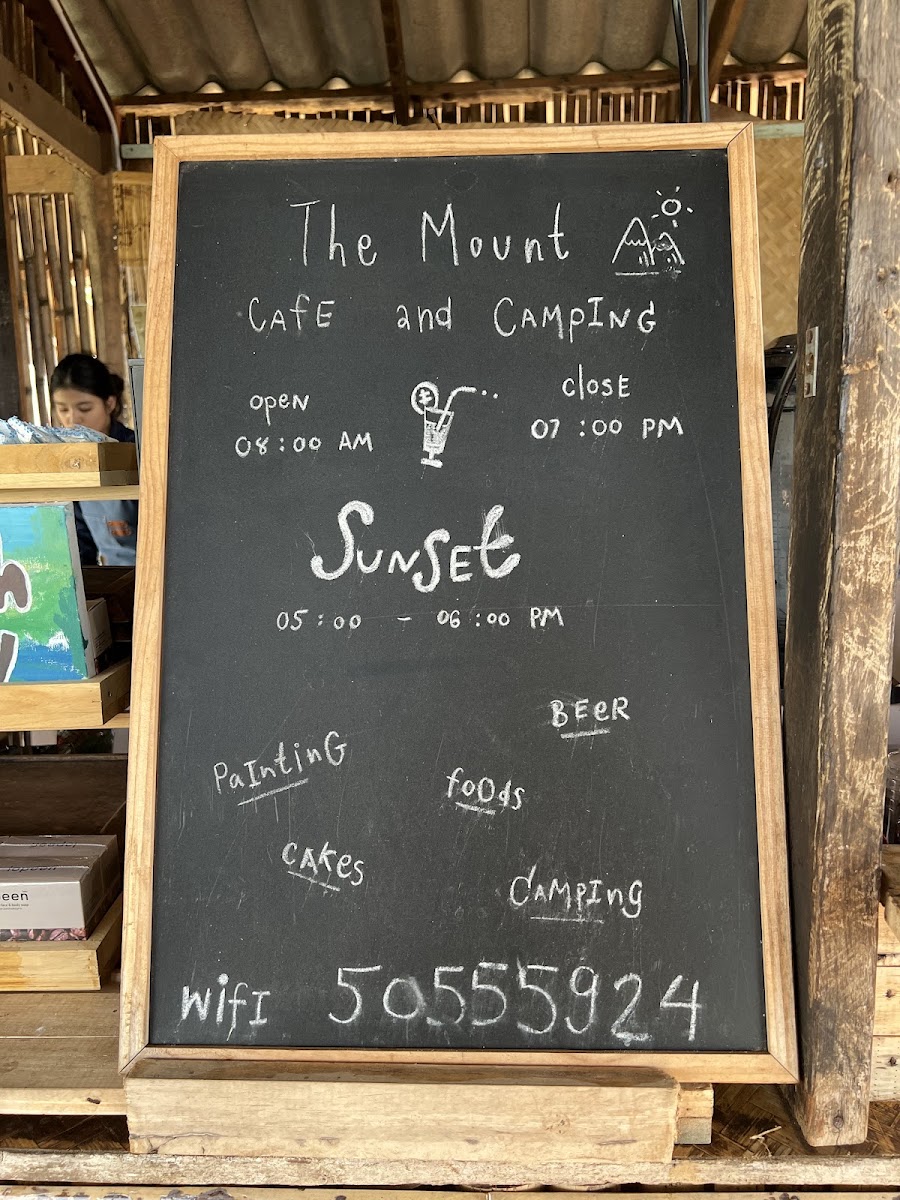 The Mount
CAfE and CAMPING
open
08:00 AM
closE
07:00 PM
SUNSEt
05:00 - 06:00 PM
BEeR
PaIntinG
foOds
CAkes
CAMPIng
WifI 50555924
een